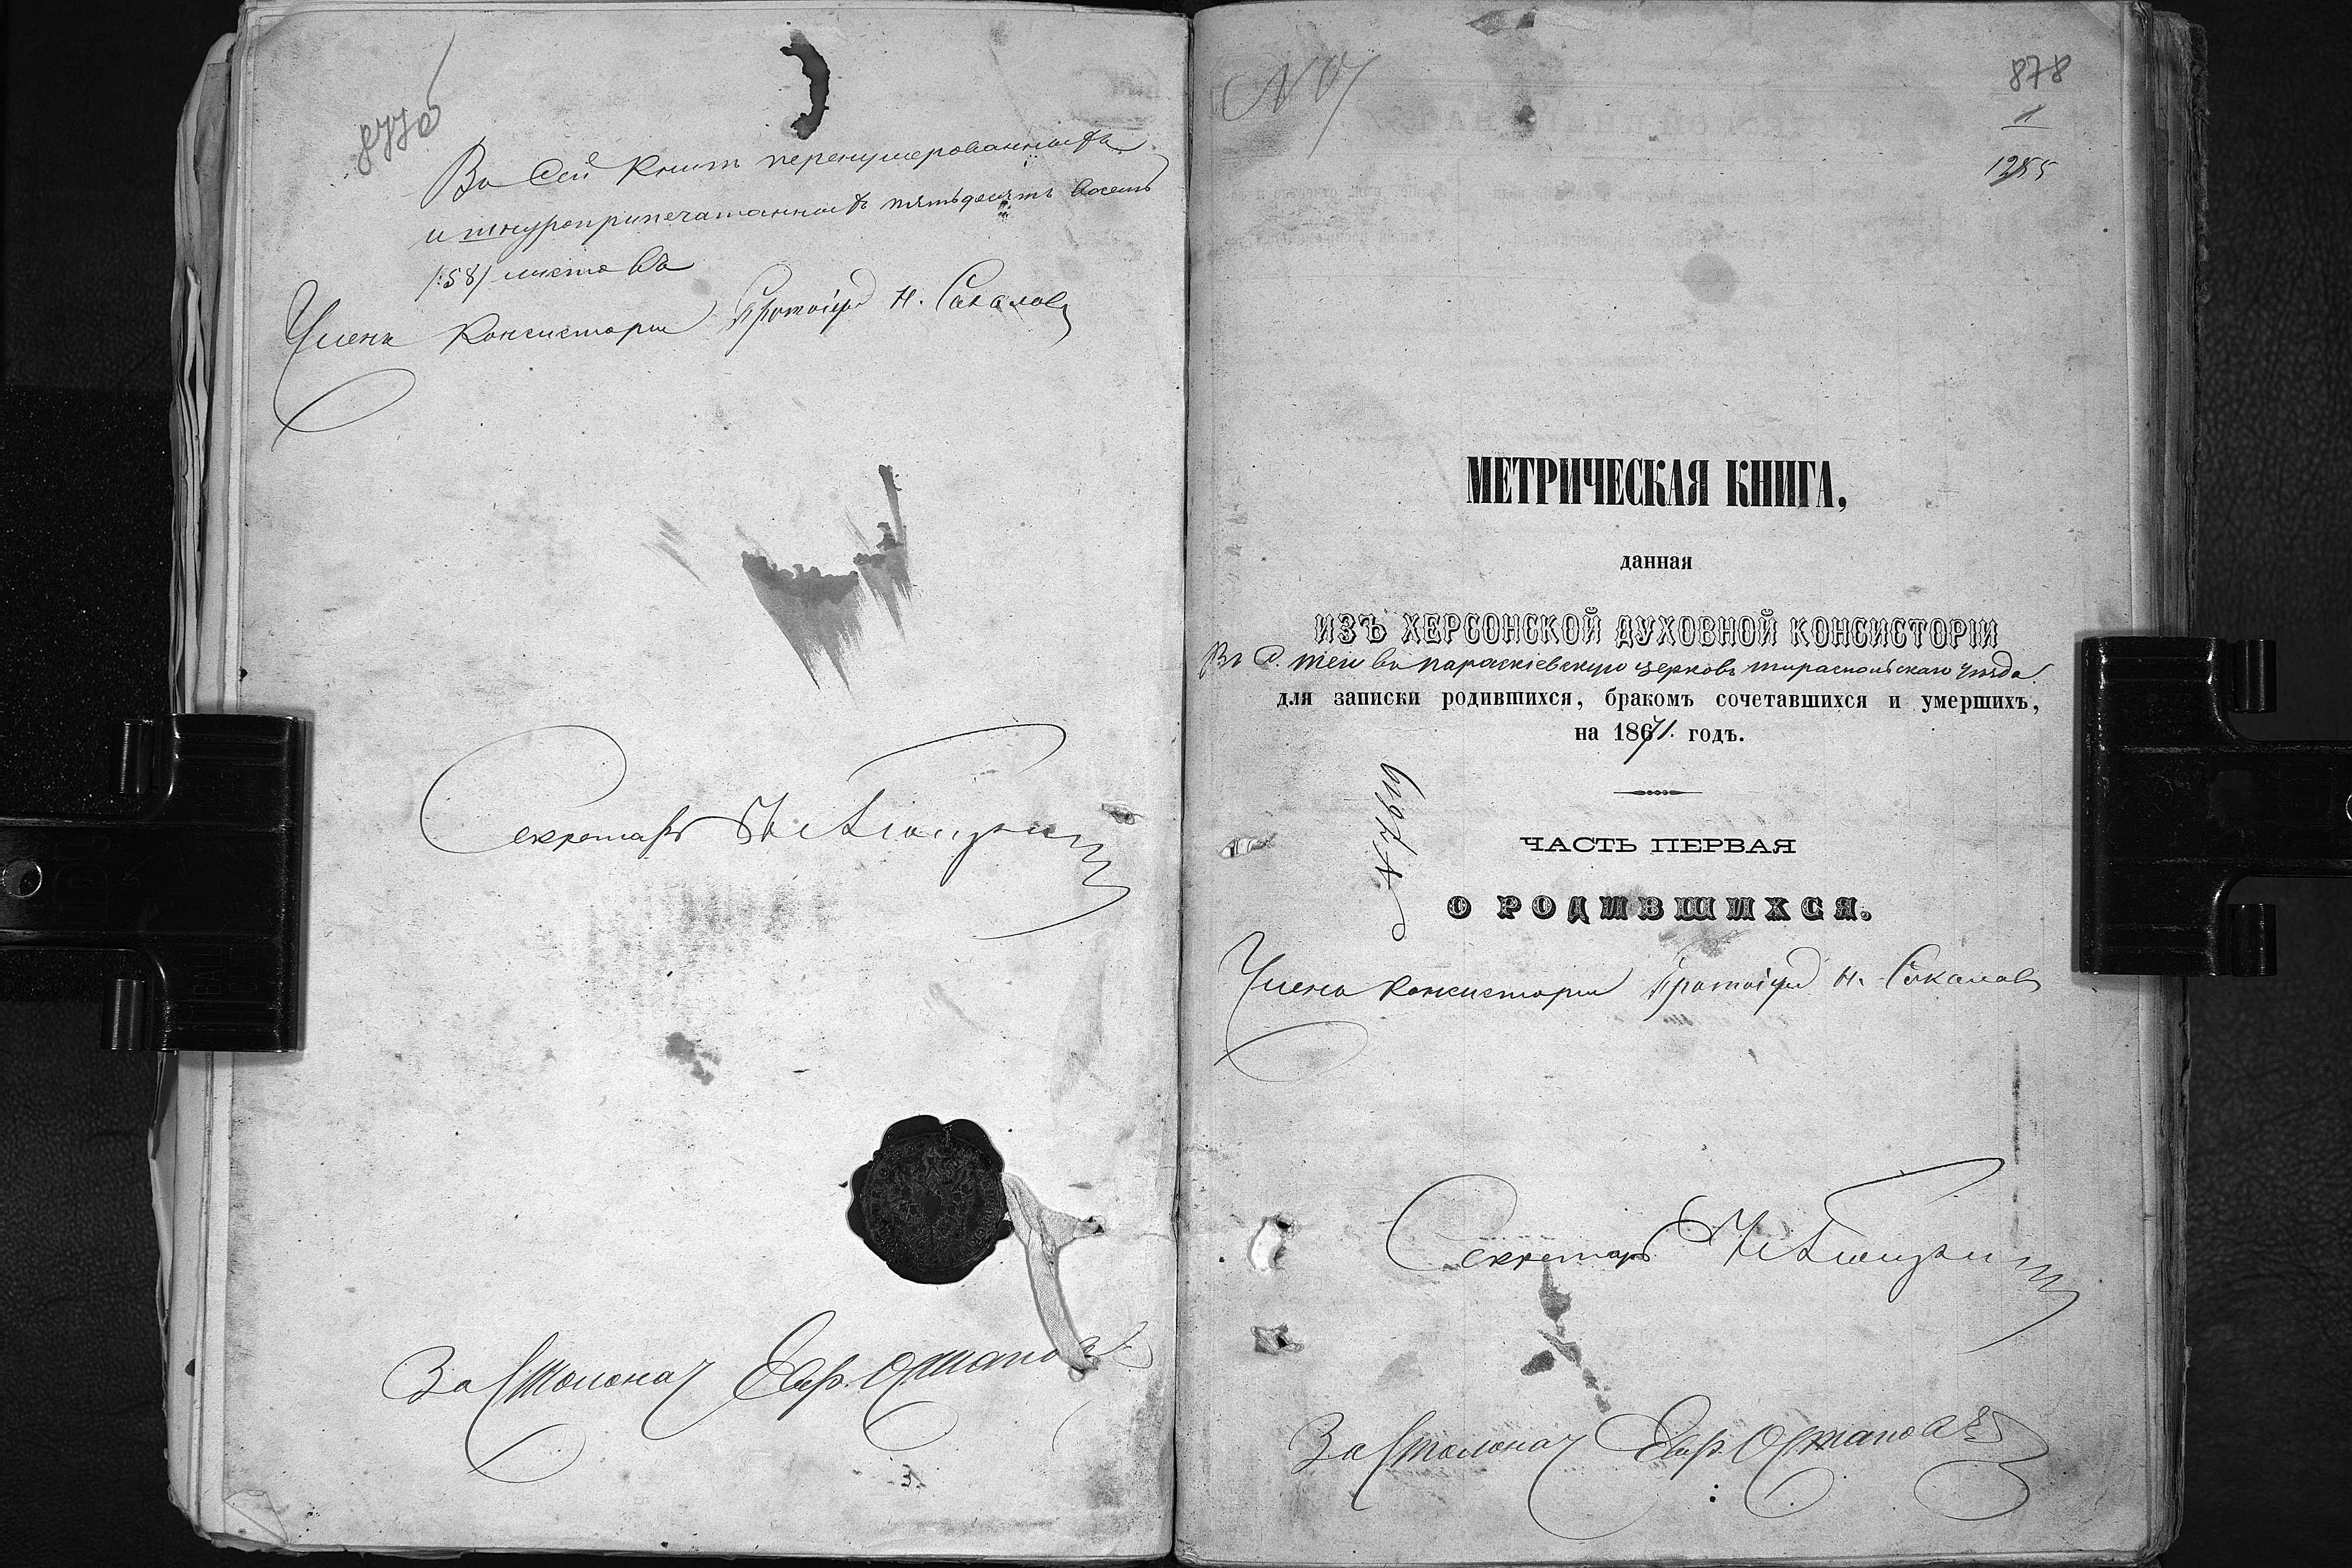 877об
Въ сей книгѣ перенумерованныхъ
и шнуроприпечатанныхъ пятьдесятъ восемь
/:58/ листовъ
Членъ Консисторіи Протоіерей Н. Соколовъ
Секретарь
За Столонач. Остапов
878
1
МЕТРИЧЕСКАЯ КНИГА,
данная
ИЗЪ ХЕРСОНСКОЙ ДУХОВНОЙ КОНСИСТОРІИ
Въ С. Теи въ параскіевскую церковь тираспольскаго уѣзда.
для записки родившихся, бракомъ сочетавшихся и умершихъ,
на 1871. годъ.
№ 7619
ЧАСТЬ ПЕРВАЯ
О РОДИВШИХСЯ.
Членъ консисторіи Протоіерей Н. Соколовъ
Секретарь
За Столонач. Остапов